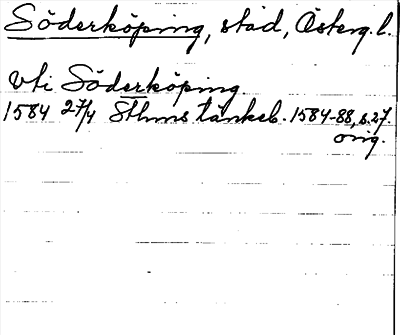 Söderköping, stad, Österg. l.
vti Söderköping.
1584 27/4 Sthms tänkeb. 1584-88, s. 27.
orig.